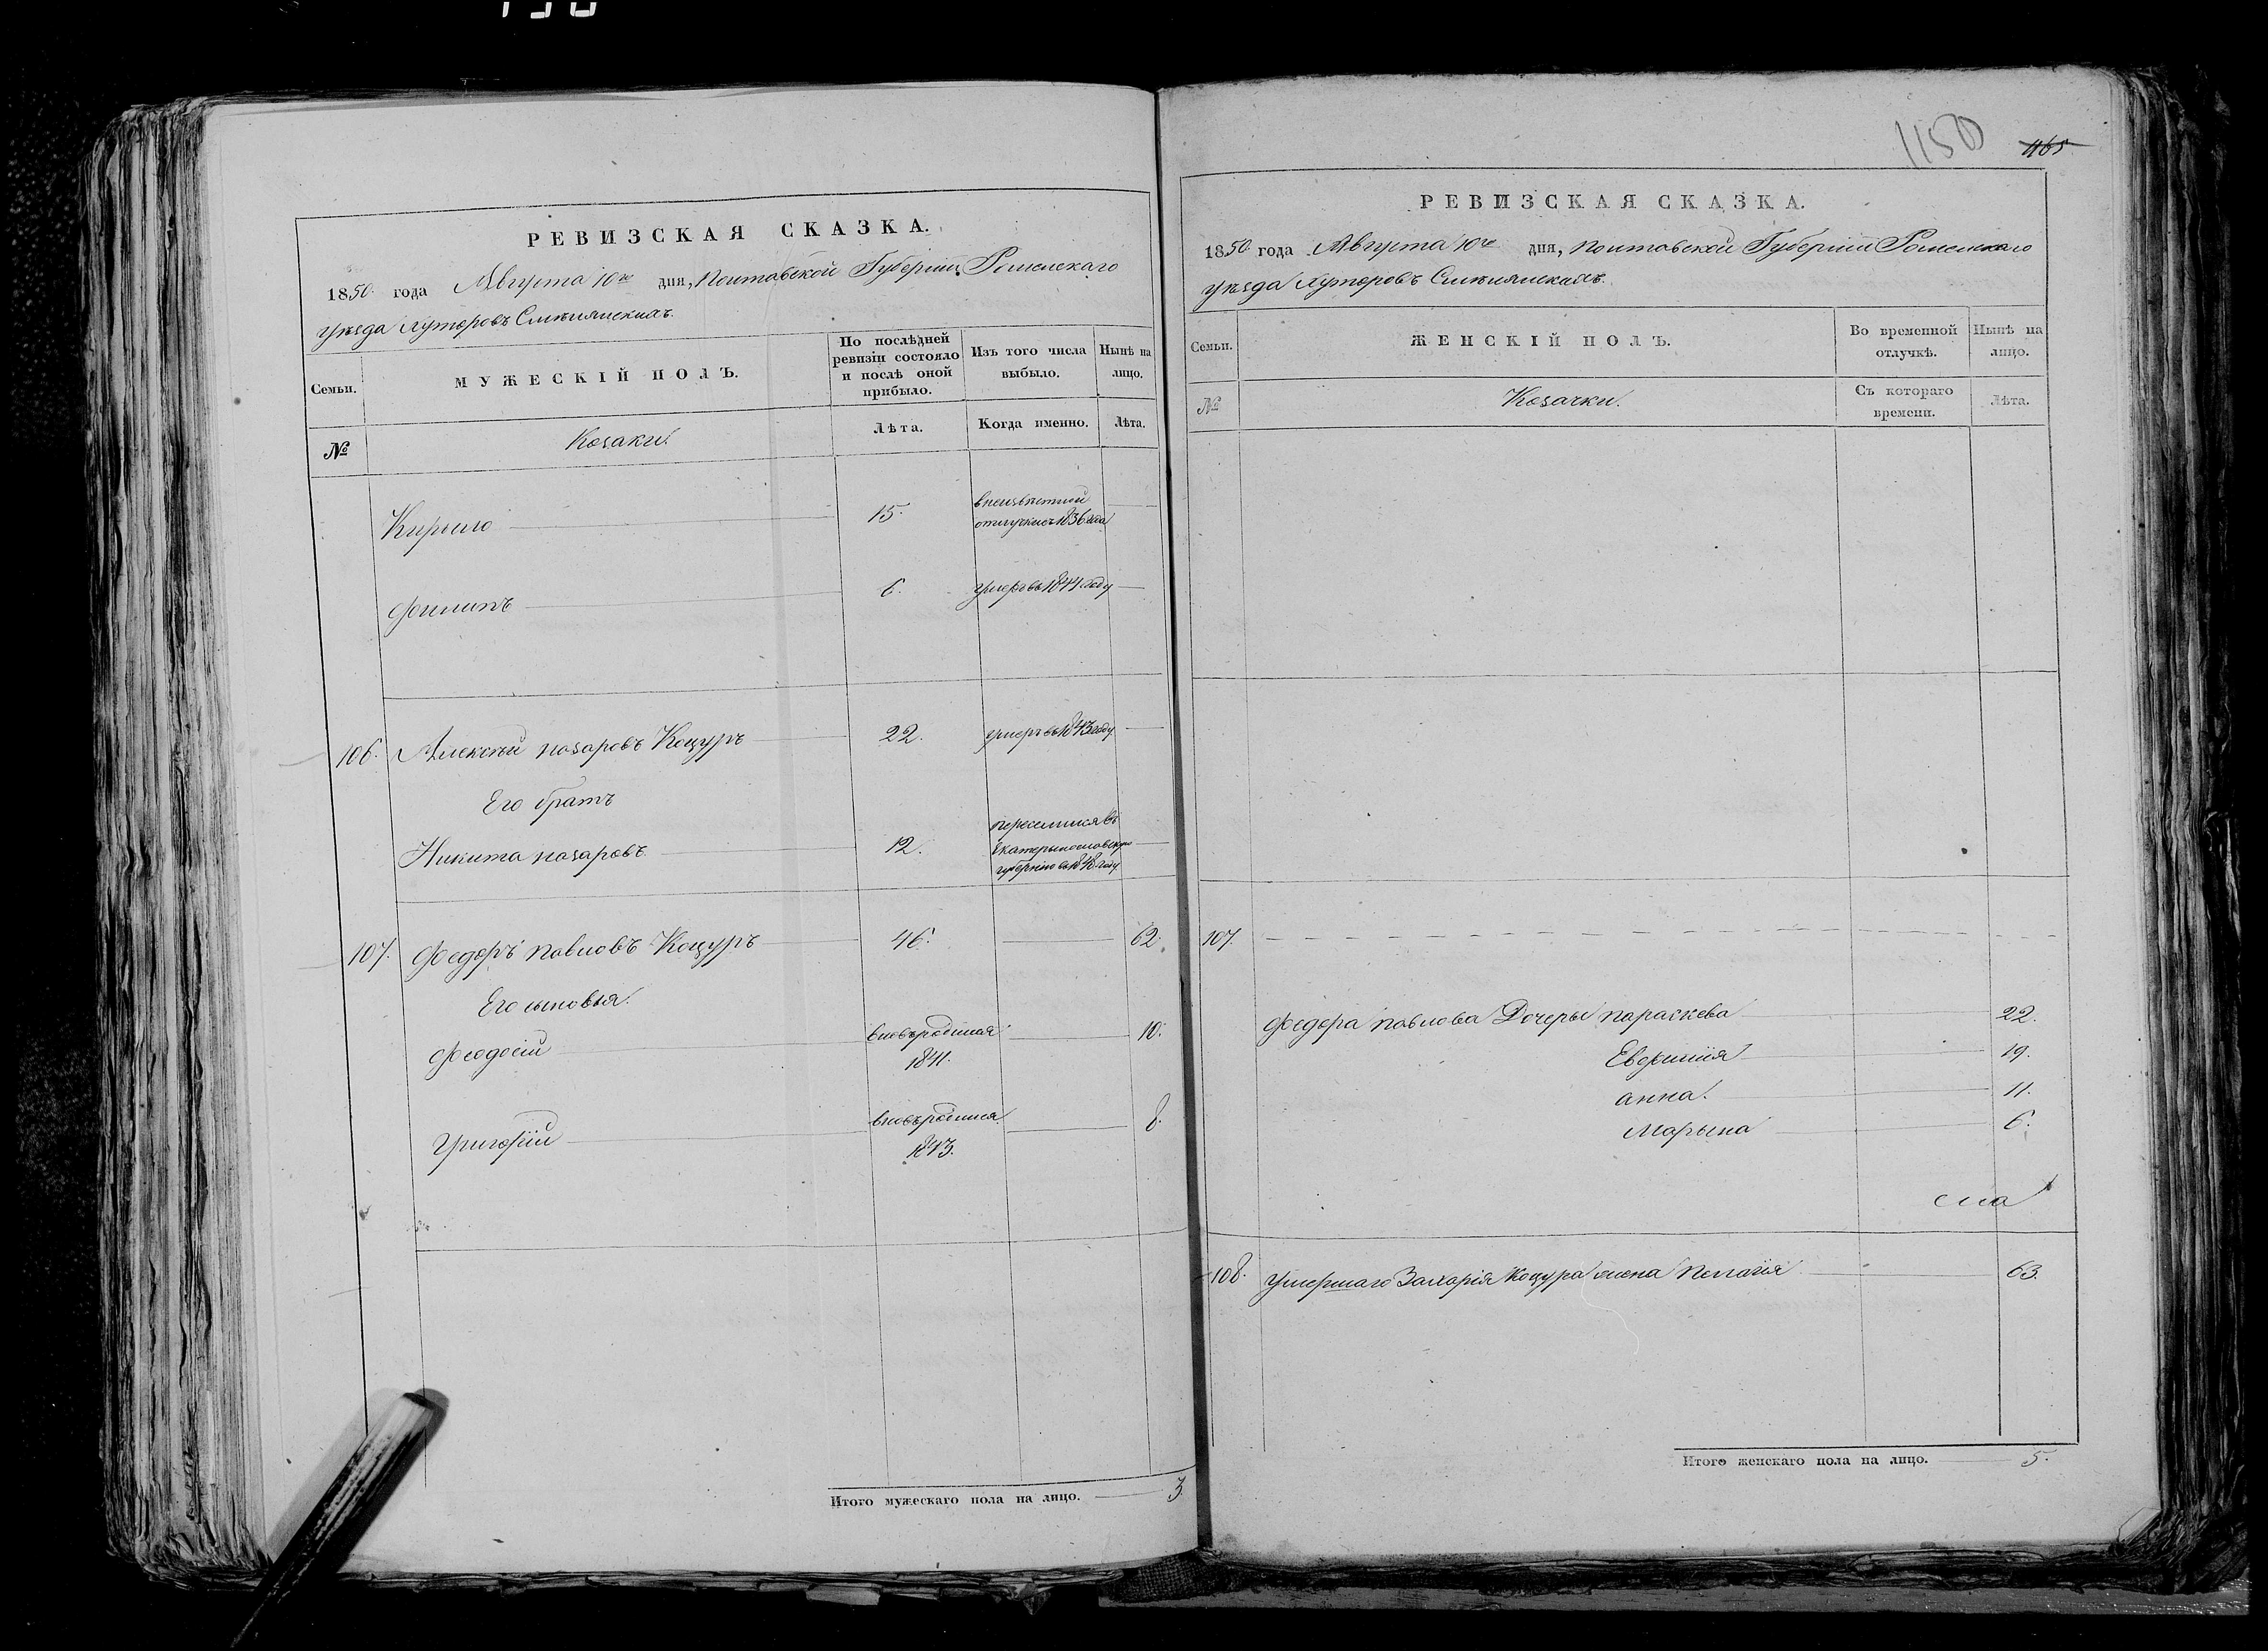 РЕВИЗСКАЯ СКАЗКА.
1850. года Августа 10го дня, Полтавской Губерніи Роменскаго
уѣзда Хуторовъ Смѣлянскихъ.
Семьи.
МУЖЕСКІЙ ПОЛЪ.
По послѣдней ревизіи состояло и послѣ оной прибыло.
Изъ того числа выбыло.
Нынѣ на лицо.
№
Козаки.
Лѣта.
Когда именно.
Лѣта.
Кирыло 15. въ неизвѣстной
отлучки съ 1836 года
Филипъ 6. умеръ въ 1841 году
106. Алексѣй назаровъ Коцуръ 22. умеръ въ 1843 году
Его братъ
Никита назаровъ 12. переселился въ
Екатерынославскую
губернію въ 1848 году
107. Федоръ павловъ Коцуръ 46. 62.
Его сыновья.
Феодосій вновьродился 10.
1841.
григорій вновьродился 8.
1843.
Итого мужескаго пола на лицо. 3.
1150 1165
РЕВИЗСКАЯ СКАЗКА.
1850 года Августа 10го дня, полтавской Губерніи Роменскаго
уѣзда Хуторовъ Смѣлянскихъ.
Семьи.
ЖЕНСКІЙ ПОЛЪ.
Во временной отлучкѣ.
Нынѣ на лицо.
№
Козачки.
Съ котораго времени.
Лѣта.
107.
Федора павлова Дочеры параскева 22.
Евфимія 19.
анна. 11.
Марына 6.
108. умершаго Захарія Коцура жена Пелагія 63.
Итого женскаго пола на лицо. 5.